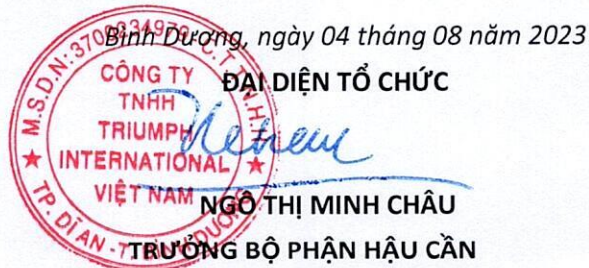 Bình Dương, ngày 04 tháng 08 năm 2023
ĐẠI DIỆN TỔ CHỨC
M.S.D.N: 3700234979 - C.T.T.N.H.H
CÔNG TY
TNHH
TRIUMPH
INTERNATIONAL
VIỆT NAM
TP. DĨ AN - T. BÌNH DƯƠNG
NGÔ THỊ MINH CHÂU
TRƯỞNG BỘ PHẬN HẬU CẦN